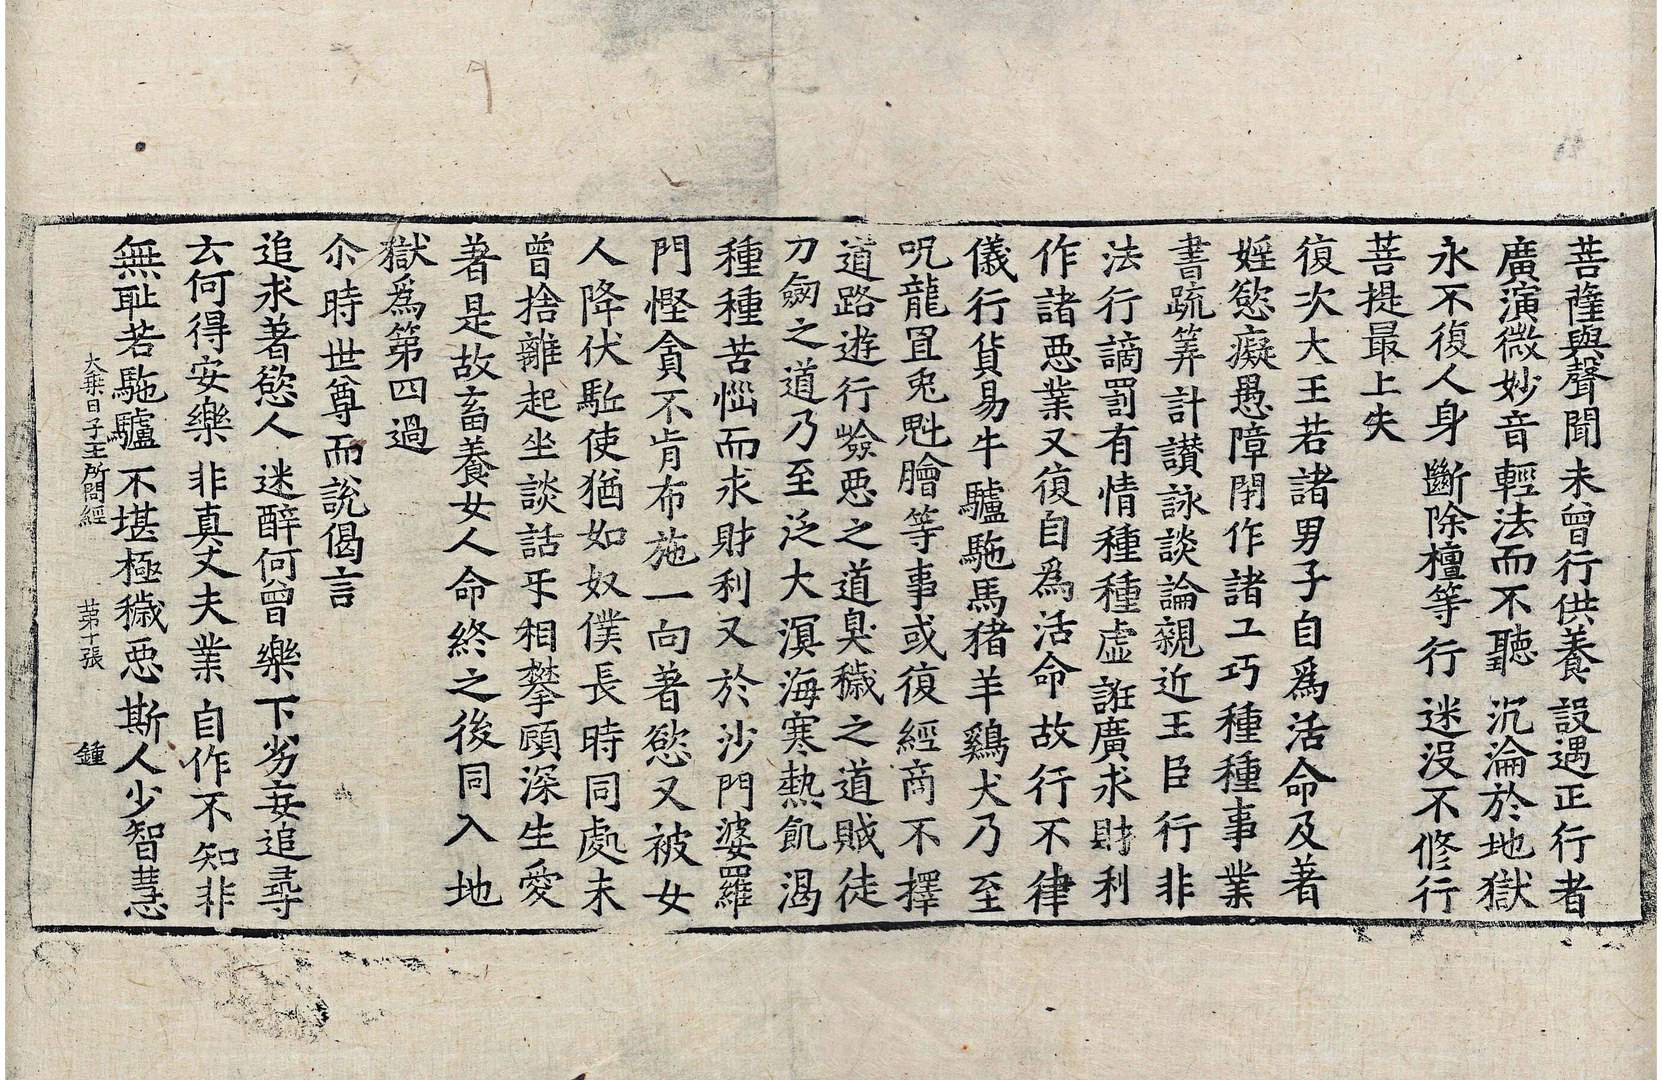 菩薩與聲聞 未曾行供養 設遇正行者
廣演微妙音 輕法而不聽 沉淪於地獄
永不復人身 斷除檀等行 迷没不修行
菩提最上失
復次大王若諸男子自爲活命及著
婬慾癡愚障閉作諸工巧種種事業
書䟽筭計讃詠談論親近王臣行非
法行謫罰有情種種虛誑廣求財利
作諸惡業又復自爲活命故行不律
儀行貨易牛驢駞馬猪羊鷄犬乃至
呪龍罝兎魁膾等事或復經商不擇
道路遊行嶮惡之道臭穢之道賊徒
刀劔之道乃至泛大溟海寒熱飢渴
種種苦惱而求財利又於沙門婆羅
門慳貪不肯布施一向著慾又被女
人降伏駈使猶如奴僕長時同處未
曾捨離起坐談話乎相攀顧深生愛
著是故畜養女人命終之後同入地
獄爲第四過
尒時世尊而說偈言
追求著慾人 迷醉何曾樂 下劣妄追尋
云何得安樂 非真丈夫業 自作不知非
無耻若駞驢 不堪極穢惡 斯人少智慧
大乘日子王所問經 第十張 鍾